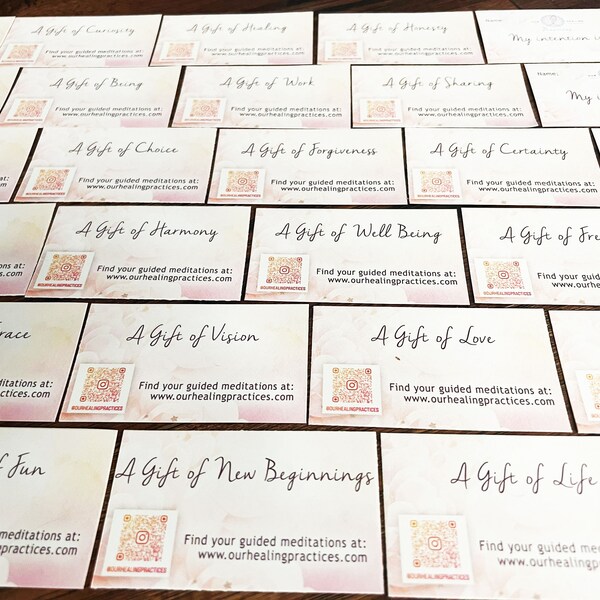 A Gift of Curiosity
Find your guided meditations at:
www.ourhealingpractices.com
A Gift of Healing
Find your guided meditations at:
www.ourhealingpractices.com
A Gift of Honesty
Find your guided meditations at:
www.ourhealingpractices.com
My intention i
A Gift of Being
Find your guided meditations at:
www.ourhealingpractices.com
A Gift of Work
Find your guided meditations at:
www.ourhealingpractices.com
A Gift of Sharing
Find your guided meditations at:
www.ourhealingpractices.com
Name:
My i
A Gift of Choice
Find your guided meditations at:
www.ourhealingpractices.com
A Gift of Forgiveness
Find your guided meditations at:
www.ourhealingpractices.com
A Gift of Certainty
Find your guided meditations at:
www.ourhealingpractices.com
ns at:
com
A Gift of Harmony
Find your guided meditations at:
www.ourhealingpractices.com
@OURHEALINGPRACTICES
A Gift of Well Being
Find your guided meditations at:
www.ourhealingpractices.com
@OURHEALINGPRACTICES
A Gift of Fre
Find your guided
www.ourh
@OURHEALINGPRACTICES
race
ditations at:
ctices.com
A Gift of Vision
Find your guided meditations at:
www.ourhealingpractices.com
@OURHEALINGPRACTICES
A Gift of Love
Find your guided meditations at:
www.ourhealingpractices.com
@OURHEALINGPRACTICES
f Fun
meditations at:
practices.com
A Gift of New Beginnings
Find your guided meditations at:
www.ourhealingpractices.com
@OURHEALINGPRACTICES
A Gift of Life
Find your guided m
www.ourheal
@OURHEALINGPRACTICES